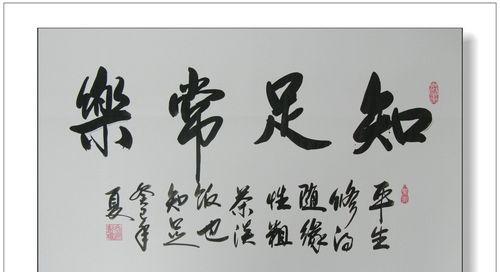 知足常樂
平生
修得
随緣
性粗
茶淡
飯也
知足
癸巳年
夏